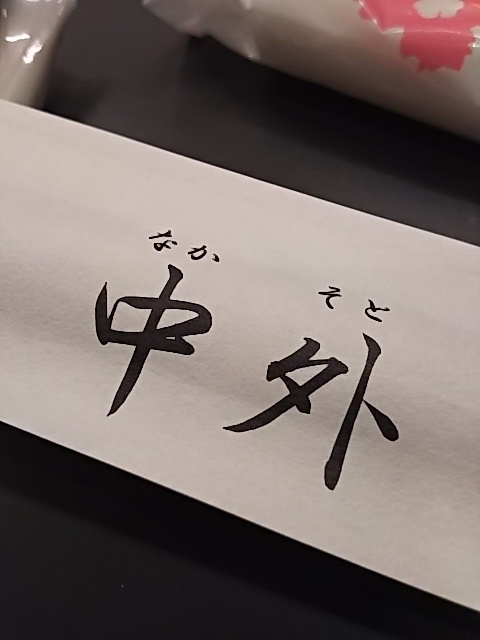 なか そと
中 外